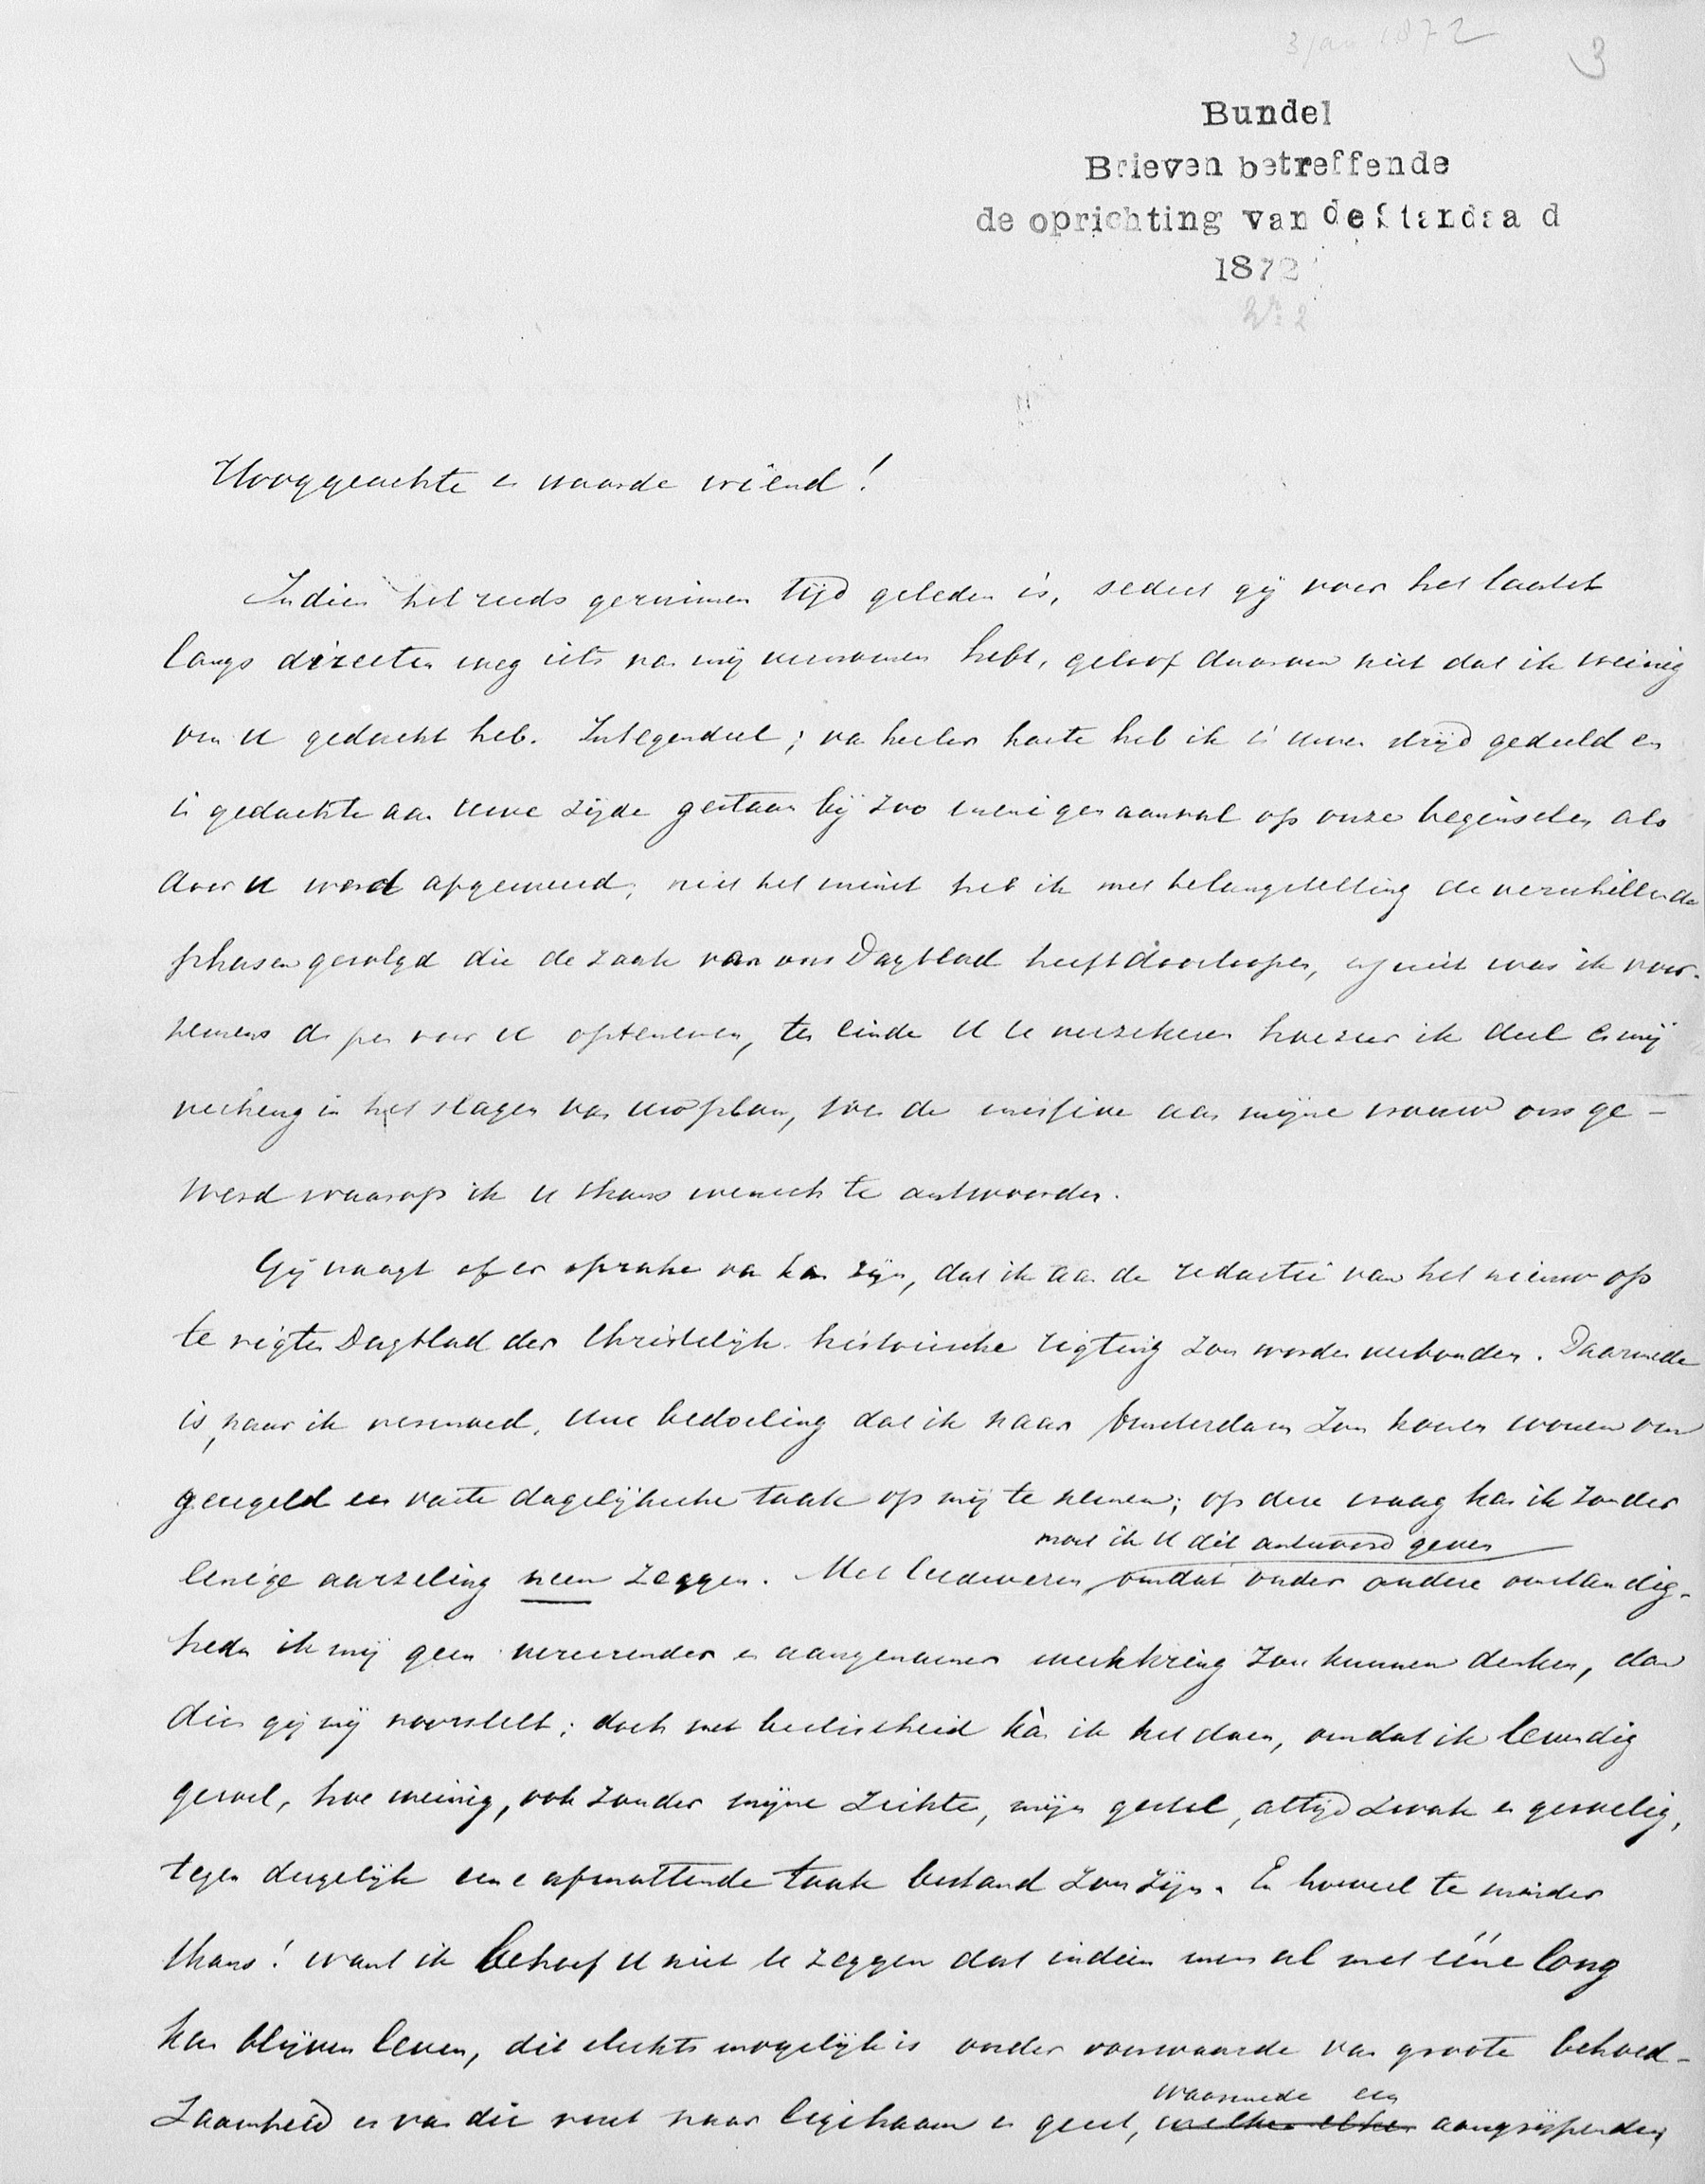 3 Jan 1872
3
Bundel
Brieven betreffende
de oprichting van de Standaard
1872
No 2
Hooggeachte en waarde vriend!
Indien het reeds geruimen tijd geleden is, sedert gij voor het laatst
langs directen weg iets van mij vernomen hebt, geloof daarom niet dat ik weinig
om U gedacht heb. Integendeel; van heeler harte heb ik in uwen strijd gedeeld en
in gedachte aan Uwe zijde gestaan bij zoo menigen aanval op onze beginselen als
door U werd afgeweerd; niet het minst heb ik met belangstelling de verschillende
phasen gevolgd die de zaak van ons Dagblad heeft doorloopen, en juist was ik voor-
nemens de pen voor U optenemen, ten einde U te verzekeren hoezeer ik deel en mij
verheug in het slagen van uw plan, toen de missive aan mijne vrouw ons ge-
werd waarop ik U thans wensch te antwoorden.
Gij vraagt of er sprake van kan zijn, dat ik aan de redactie van het nieuw op
te rigten Dagblad der Christelijk historische rigting zou worden verbonden. Daarmede
is, naar ik vermoed, Uwe bedoeling dat ik naar Amsterdam zou komen wonen om
geregeld een vaste dagelijksche taak op mij te nemen; op deze vraag kan ik zonder
moet ik U dit antwoord geven
eenige aarzeling neen zeggen. Met leedwezen omdat onder andere omstandig-
heden ik mij geen vereerender en aangenamer werkkring zou kunnen denken, dan
dien gij mij voorstelt; doch met beslistheid kàn ik het doen, omdat ik levendig
gevoel, hoe weinig, ook zonder mijne ziekte, mijn gestel, altijd zwak en gevoelig,
tegen dergelijk eene afmattende taak bestand zou zijn. En hoeveel te minder
thans! want ik behoef U niet te zeggen dat indien men al met ééne long
kan blijven leven, dit slechts mogelijk is onder voorwaarde van groote behoed-
waarmede een
zaamheid en van die rust naar ligchaam en geest, welker elker aangrijpenden